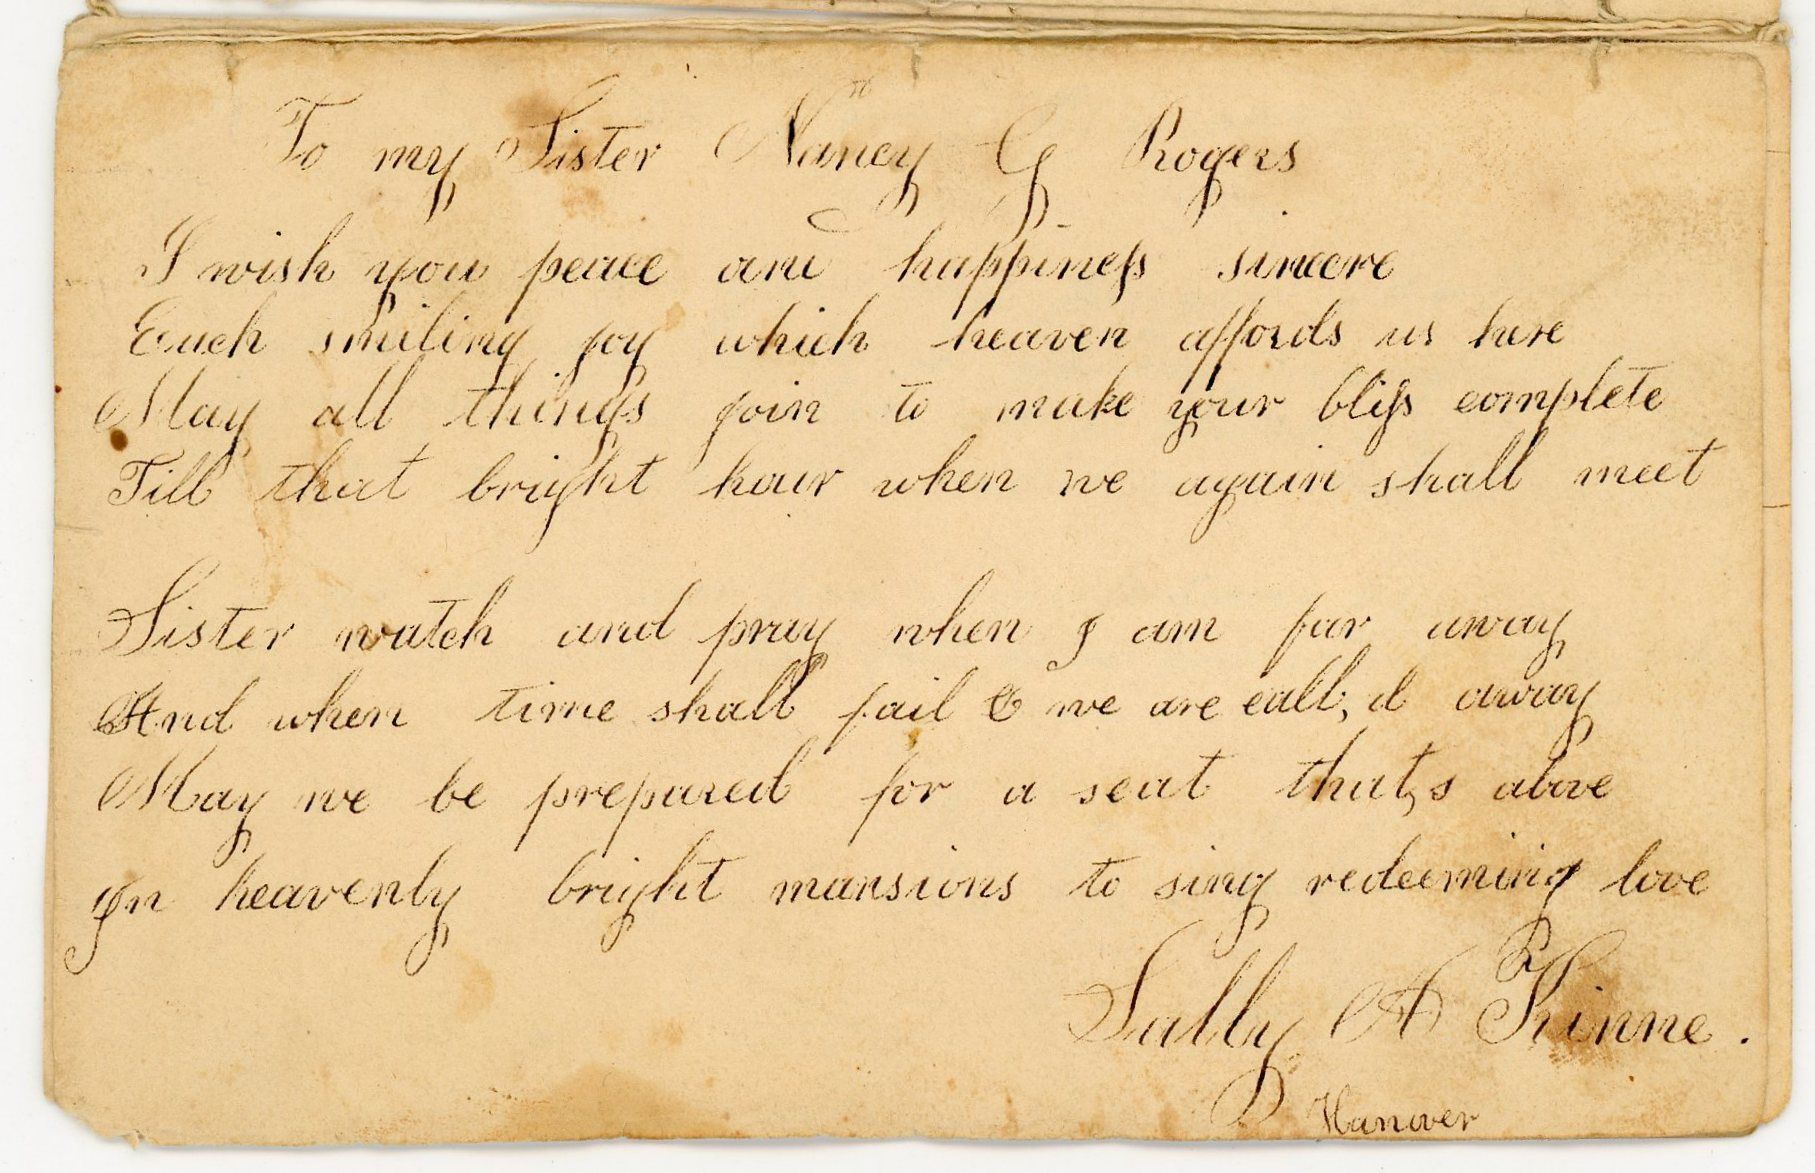 To my Sister Nancy G Rogers
I wish you peace and happiness sincere
Each smiling joy which heaven affords us here
May all things join to make your bliss complete
Till that bright hour when we again shall meet
Sister watch and pray when I am far away
And when time shall fail & we are call,d away
May we be prepared for a seat that,s above
In heavenly bright mansions to sing redeeming love
Sally A Kinne.
Hanover